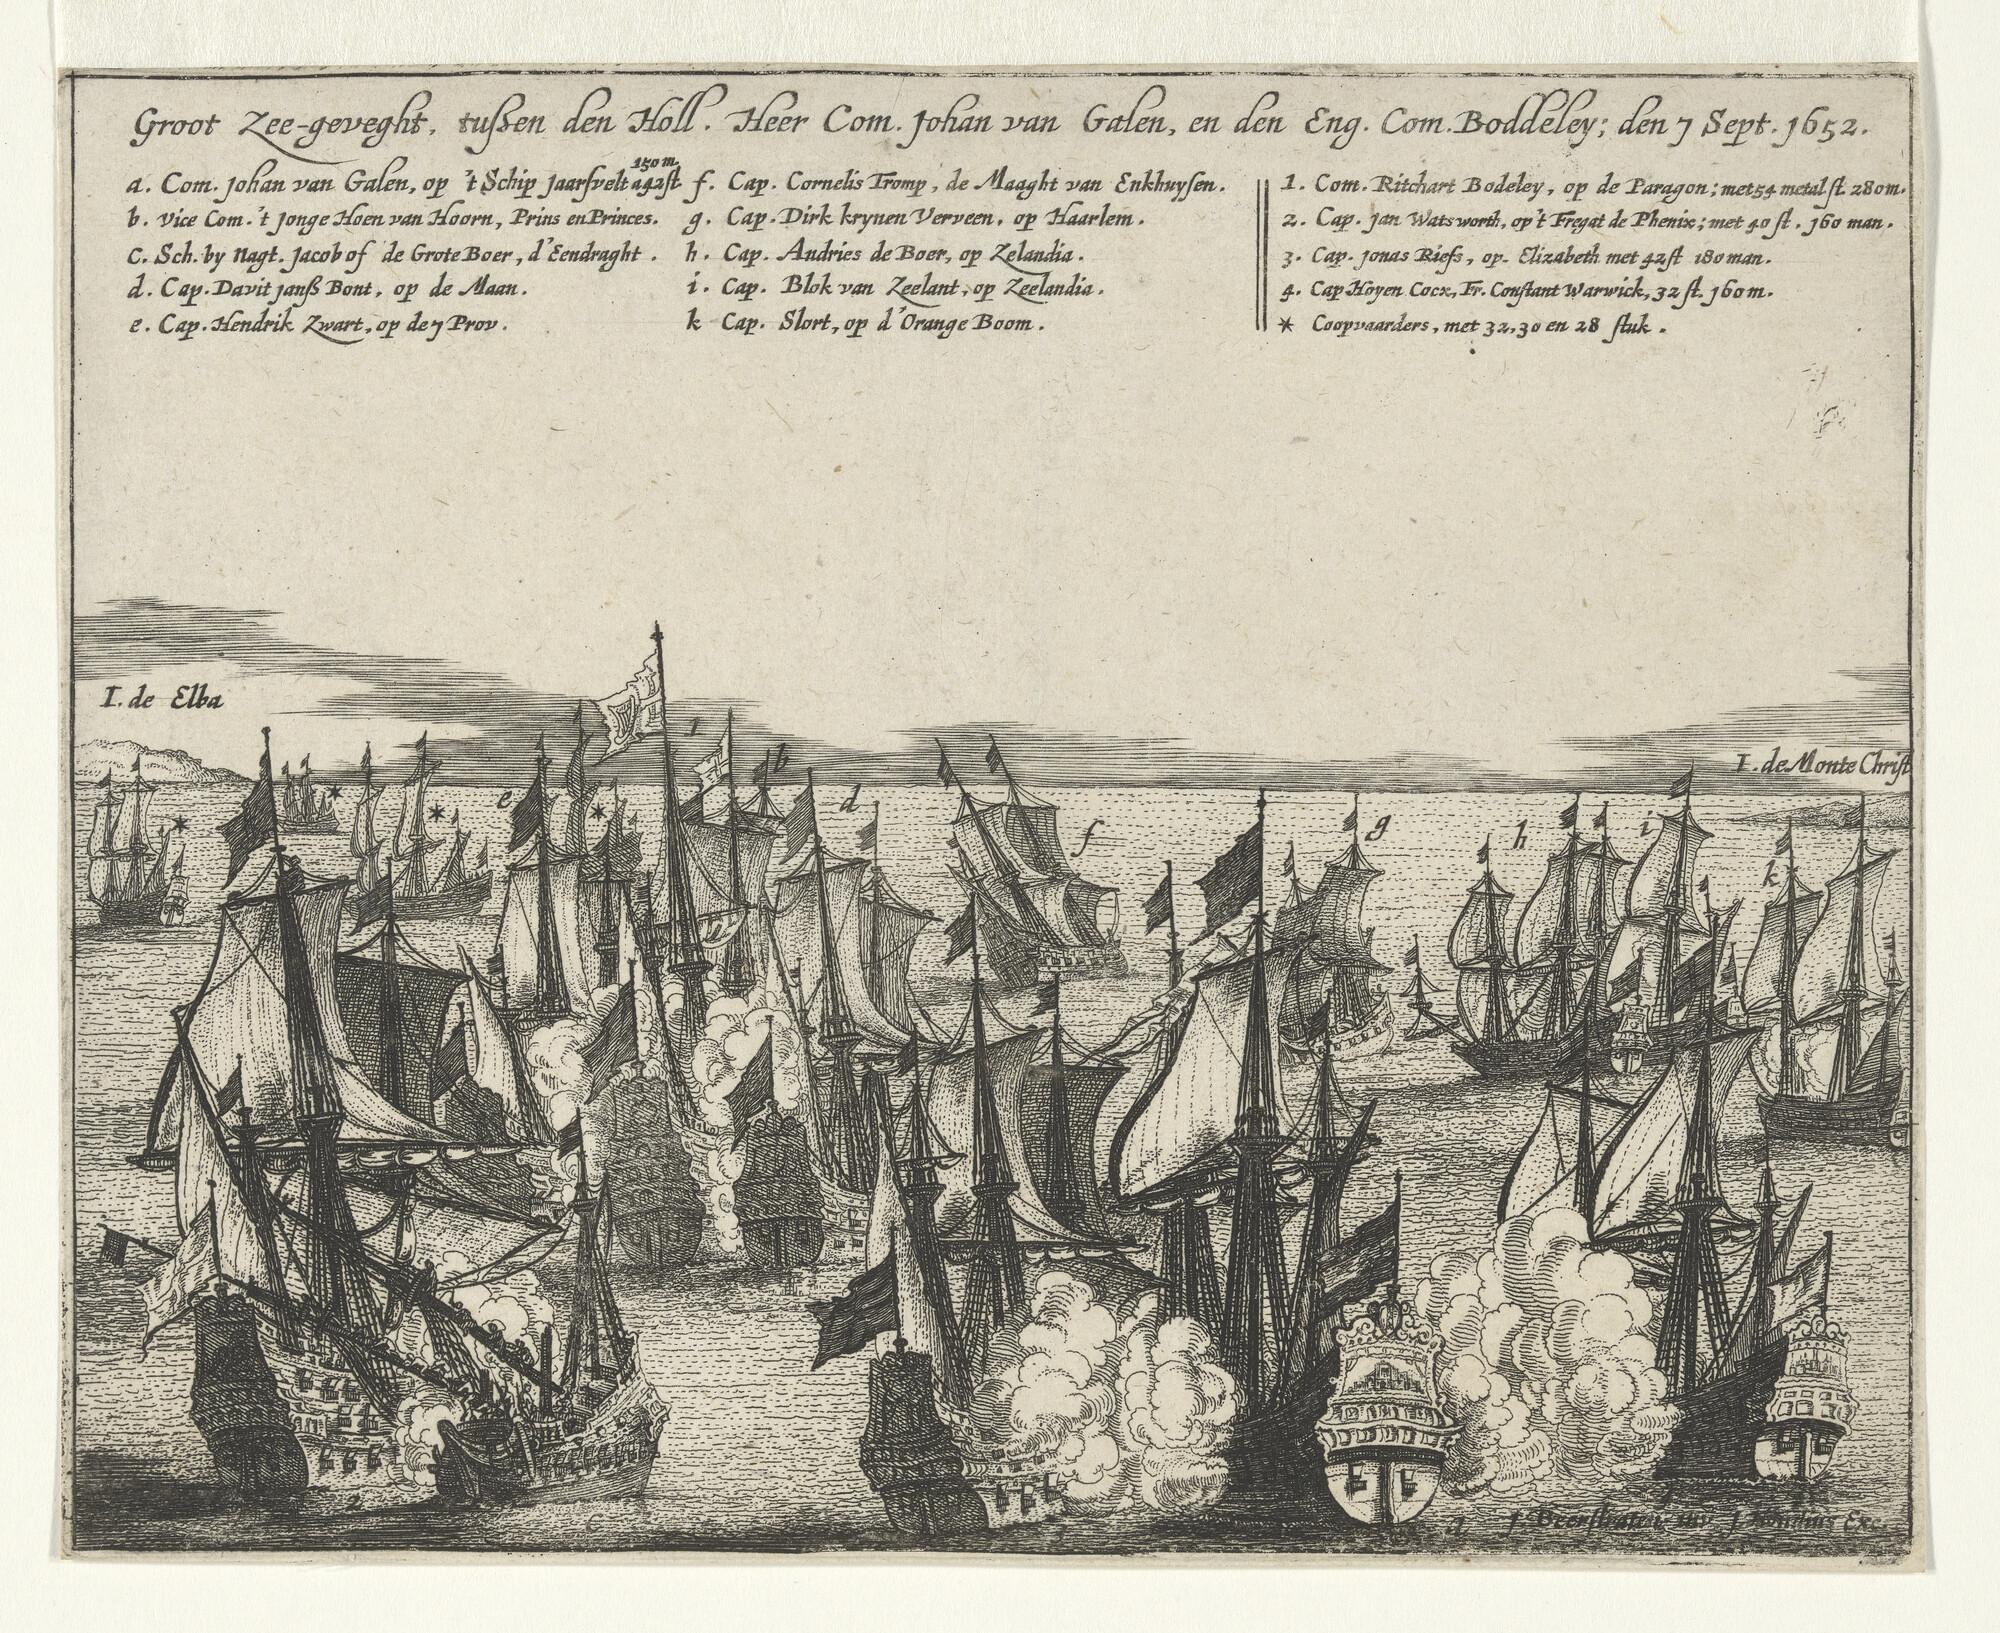 Groot Zee-geveght, tußen den Holl. Heer Com. Johan van Galen, en den Eng. Com. Boddeley; den 7 Sept. 1652.
150 m.
a. Com. Johan van Galen, op 't Schip Jaarsvelt a 42 st.
b. vice Com. 't Jonge Hoen van Hoorn, Prins en Princes.
c. Sch. by Nagt. Jacob of de Grote Boer, d'Eendraght.
d. Cap. Davit Janß Bont, op de Maan.
e. Cap. Hendrik Zwart, op de 7 Prov.
f. Cap. Cornelis Tromp, de Maaght van Enkhuysen.
g. Cap. Dirk krynen Verveen, op Haarlem.
h. Cap. Andries de Boer, op Zelandia.
i. Cap. Blok van Zeelant, op Zeelandia.
k Cap. Slort, op d'Orange Boom.
1. Com. Ritchart Bodeley, op de Paragon; met 54 metal st. 280 m.
2. Cap. Jan Wats worth, op 't Fregat de Phenix; met 40 st. 160 man.
3. Cap. Jonas Riefs, op. Elizabeth met 42 st 180 man.
4. Cap Hoyen Cocx, Fr. Constant Warwick, 32 st. 160 m.
* Coopvaarders, met 32, 30 en 28 stuk.
I. de Elba
I. de Monte Christ
1
b
e
d
*
*
*
f
g
h
i
k
2
c
3
a
J. Beerstraten inv J. Hondius Exc.